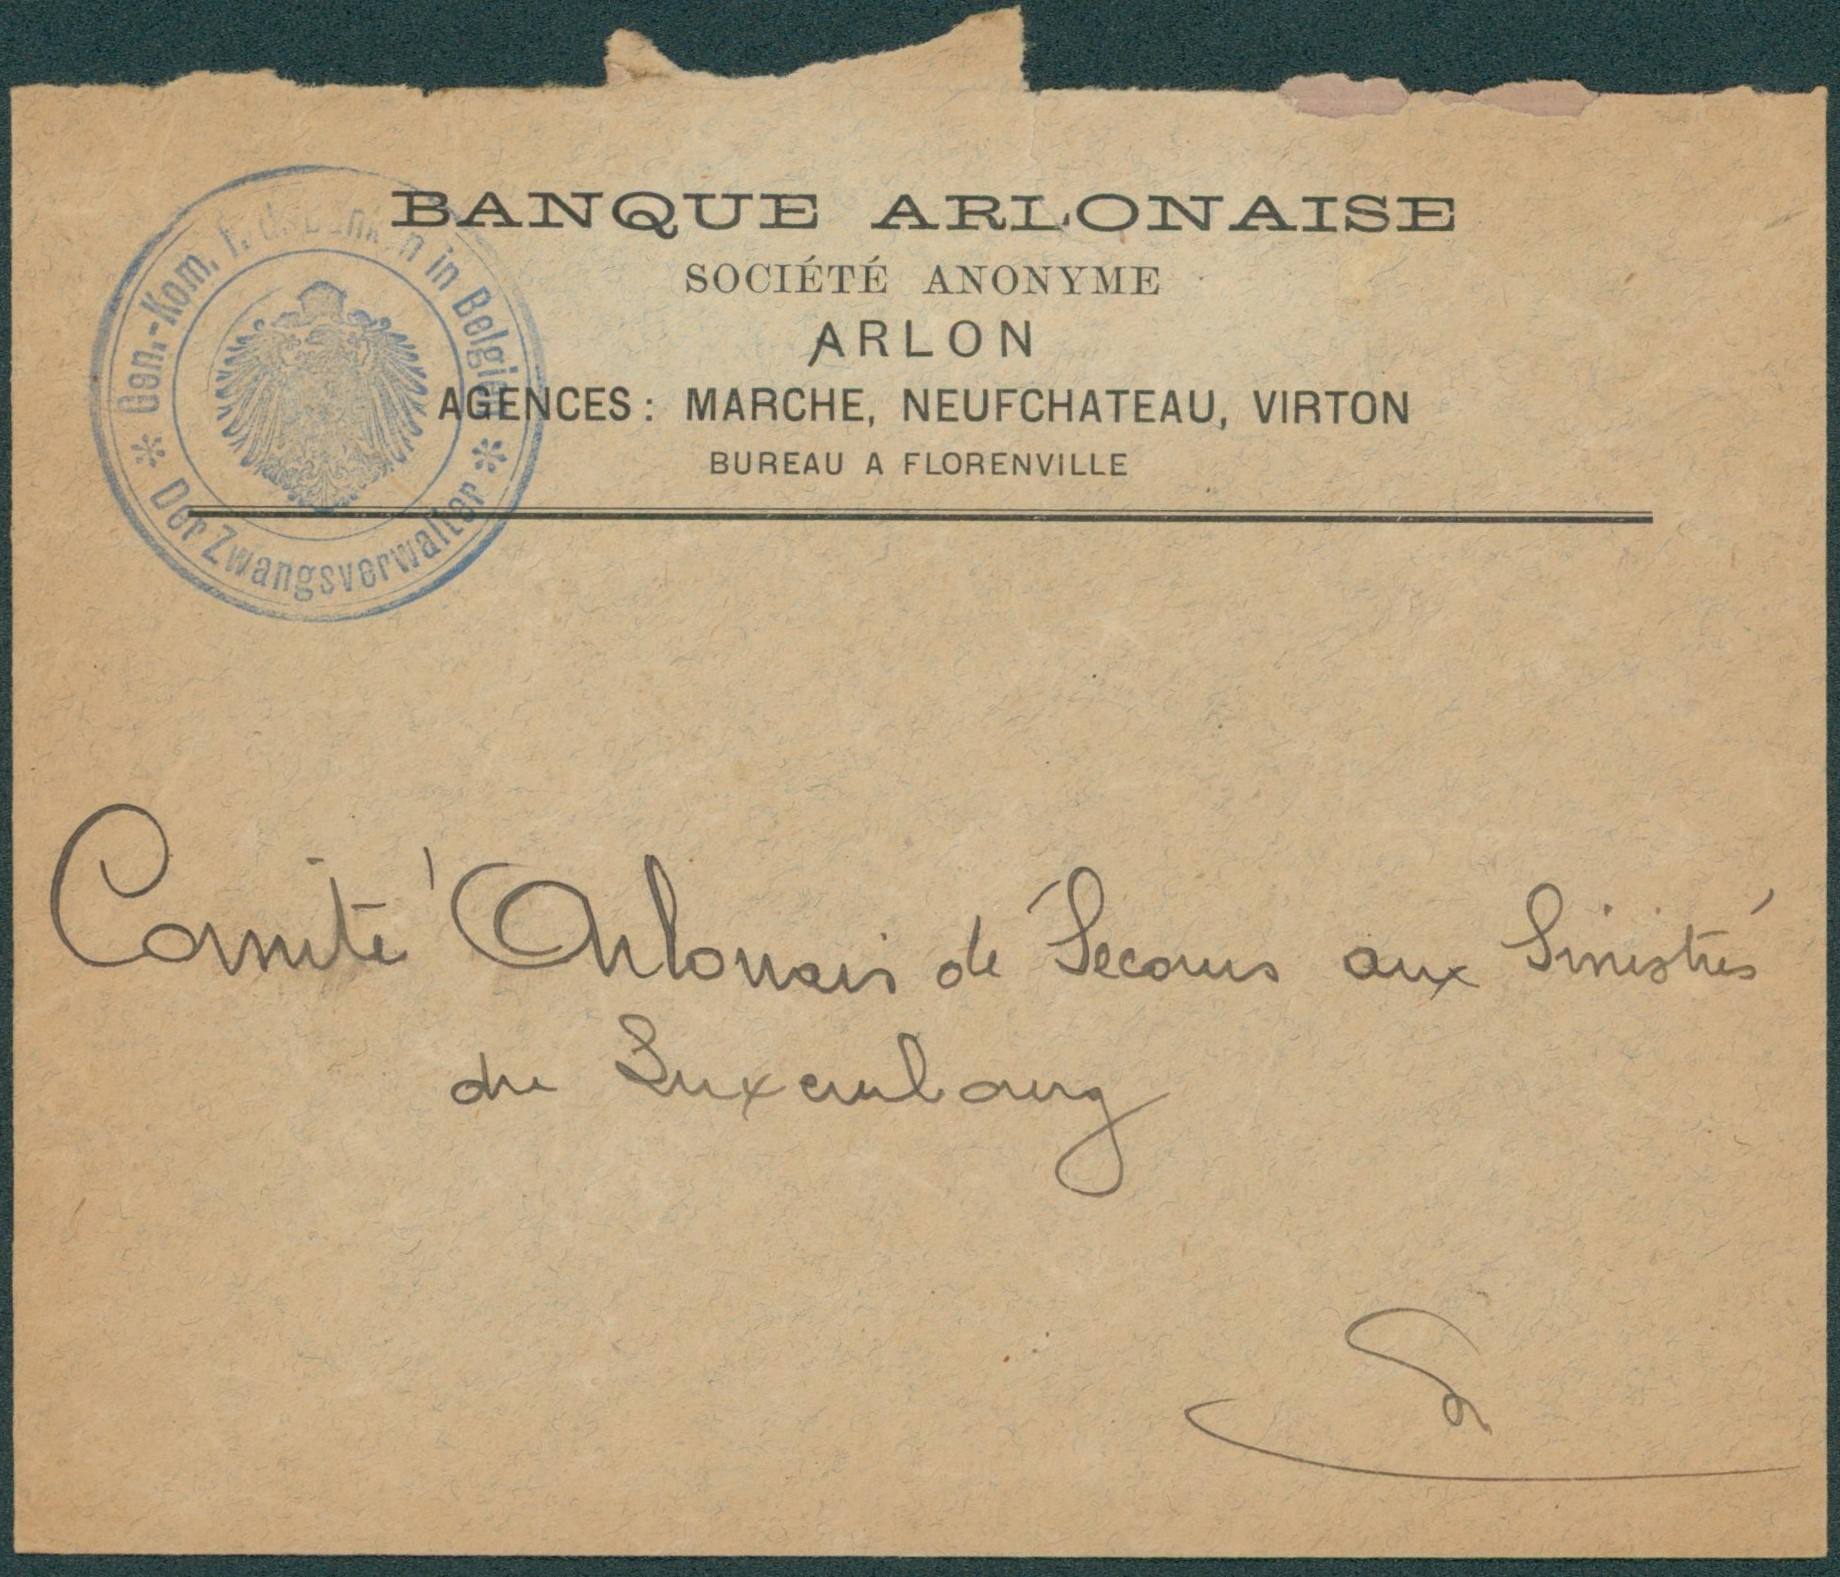 BANQUE ARLONAISE
SOCIÉTÉ ANONYME
ARLON
AGENCES: MARCHE, NEUFCHATEAU, VIRTON
BUREAU A FLORENVILLE
Gen.-Kom. f. d. Banken in Belgien
* Der Zwangsverwalter *
Comité Arlonais de Secours aux Sinistrés
du Luxembourg